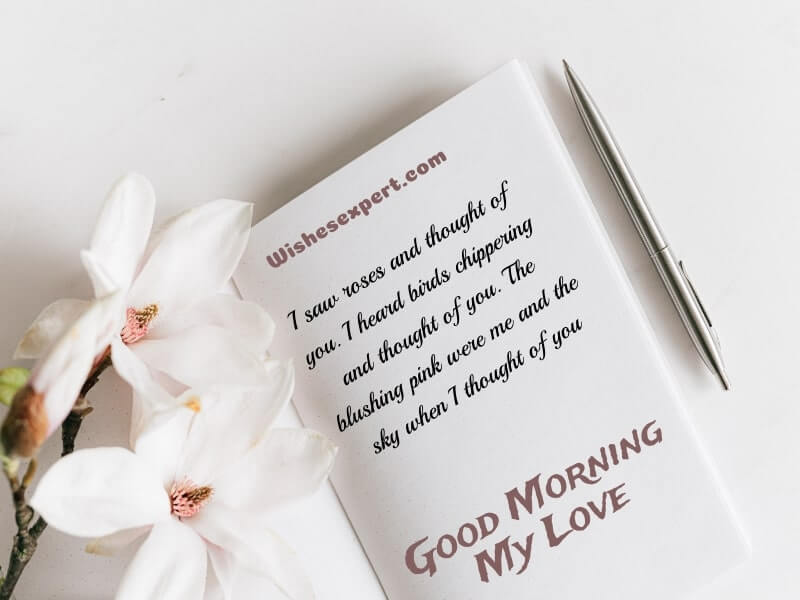 Wishesexpert.com
I saw roses and thought of
you. I heard birds chippering
and thought of you. The
blushing pink were me and the
sky when I thought of you
Good Morning
My Love